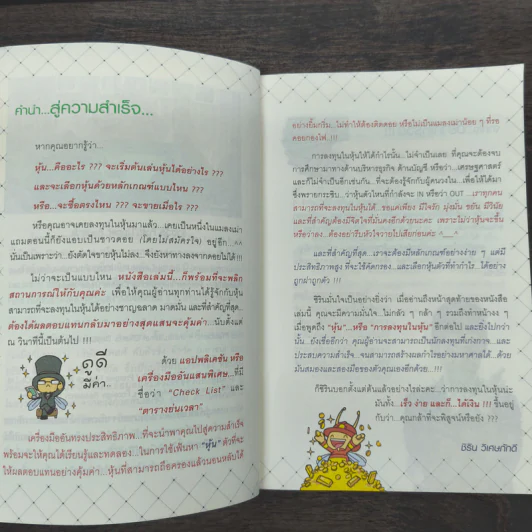 คำนำ...สู่ความสำเร็จ...
หากคุณอยากรู้ว่า...
หุ้น...คืออะไร ??? จะเริ่มต้นเล่นหุ้นได้อย่างไร ???
และจะเลือกหุ้นด้วยหลักเกณฑ์แบบไหน ???
หรือ...จะซื้อตรงไหน ??? จะขายเมื่อไร ???
หรือคุณอาจเคยลงทุนในหุ้นมาแล้ว...เคยเป็นหนึ่งในแมงเม่า
แถมตอนนี้ก็ยังแอบเป็นชาวดอย (โดยไม่สมัครใจ) อยู่อีก...^^
นั่นเป็นเพราะว่า...ยังตัดใจขายหุ้นไม่ลง...จึงยังหาทางลงจากดอยไม่ได้ !!!
ไม่ว่าจะเป็นแบบไหน หนังสือเล่มนี้...ก็พร้อมที่จะพลิก
สถานการณ์ให้กับคุณค่ะ เพื่อให้คุณผู้อ่านทุกท่านได้รู้จักกับหุ้น
สามารถที่จะลงทุนในหุ้นได้อย่างชาญฉลาด มาดมั่น และที่สำคัญที่สุด...
ต้องได้ผลตอบแทนกลับมาอย่างสุดแสนจะคุ้มค่า...นับตั้งแต่
ณ วินาทีนี้เป็นต้นไป !!!
ดูดี
มีค่า..
ด้วย แอปพลิเคชัน หรือ
เครื่องมืออันแสนพิเศษ...ที่มี
ชื่อว่า "Check List" และ
"ตารางย่นเวลา"
เครื่องมืออันทรงประสิทธิภาพ...ที่จะนำพาคุณไปสู่ความสำเร็จ
พร้อมจะให้คุณได้เรียนรู้และทดลอง...ในการใช้เฟ้นหา "หุ้น" ตัวที่จะ
ให้ผลตอบแทนอย่างคุ้มค่า...หุ้นที่สามารถถือครองแล้วนอนหลับได้
อย่างยิ้มกริ่ม...ไม่ทำให้ต้องติดดอย หรือไม่เป็นแมลงเม่าน้อย ๆ ที่รอ
คอยกองไฟ..!!!
การลงทุนในหุ้นให้ได้กำไรนั้น...ไม่จำเป็นเลย ที่คุณจะต้องจบ
การศึกษามาทางด้านบริหารธุรกิจ ด้านบัญชี หรือว่า...เศรษฐศาสตร์
และก็ไม่จำเป็นอีกเช่นกัน ที่จะต้องรู้จักกับผู้คนวงใน...เพื่อให้ได้มา
ซึ่งพรายกระซิบ...ว่าหุ้นตัวไหนที่กำลังจะ IN หรือว่า OUT ...เราทุกคน
สามารถที่จะลงทุนในหุ้นได้...ขอแค่เพียง มีใจรัก มุ่งมั่น ขยัน มีวินัย
และที่สำคัญต้องมีจิตใจที่มั่นคงอีกด้วยนะคะ เพราะไม่ว่าหุ้นจะขึ้น
หรือว่าลง...ต้องอย่ารีบหัวใจวายไปเสียก่อนค่ะ ^___^
และที่สำคัญที่สุด...เราจะต้องมีหลักเกณฑ์อย่างง่าย ๆ แต่มี
ประสิทธิภาพสูง ที่จะใช้คัดกรอง...และเลือกหุ้นตัวที่ทำกำไร...ได้อย่าง
ถูกฝาถูกตัว !!!
ชิรินมั่นใจเป็นอย่างยิ่งว่า เมื่ออ่านถึงหน้าสุดท้ายของหนังสือ
เล่มนี้ คุณจะมีความมั่นใจ...ไม่กลัว ๆ กล้า ๆ รวมถึงทำหน้างง ๆ
เมื่อพูดถึง "หุ้น"...หรือ "การลงทุนในหุ้น" อีกต่อไป และยิ่งไปกว่า
นั้น...ยังเชื่ออีกว่า คุณผู้อ่านจะสามารถเป็นนักลงทุนที่เก่งกาจ...และ
ประสบความสำเร็จ...จนสามารถสร้างผลกำไรอย่างมหาศาลได้...ด้วย
มันสมองและสองมือของตัวคุณเองอีกด้วย...!!!
ก็ชิรินบอกตั้งแต่ต้นแล้วอย่างไรล่ะคะ...ว่าการลงทุนในหุ้นน่ะ
มันทั้ง...เร็ว ง่าย และก็...ได้เงิน !!! ขึ้นอยู่
กับว่า...คุณกล้าที่จะพิสูจน์หรือยัง ???
ชิริน วิเศษภักดี